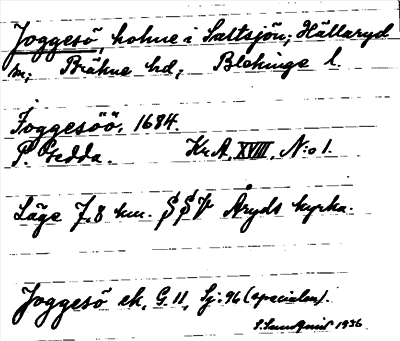 Joggesö, holme i Saltsjön; Hällaryd
sn; Bräkne hd; Blekinge l.
Joggesöö, 1684.
P. Gedda. Kr.A. XVIII, N:o 1.
Läge 7,8 km. Åryds kyrka.
Joggesö ek. G. 11, Sj: 96 (specialen).
1936